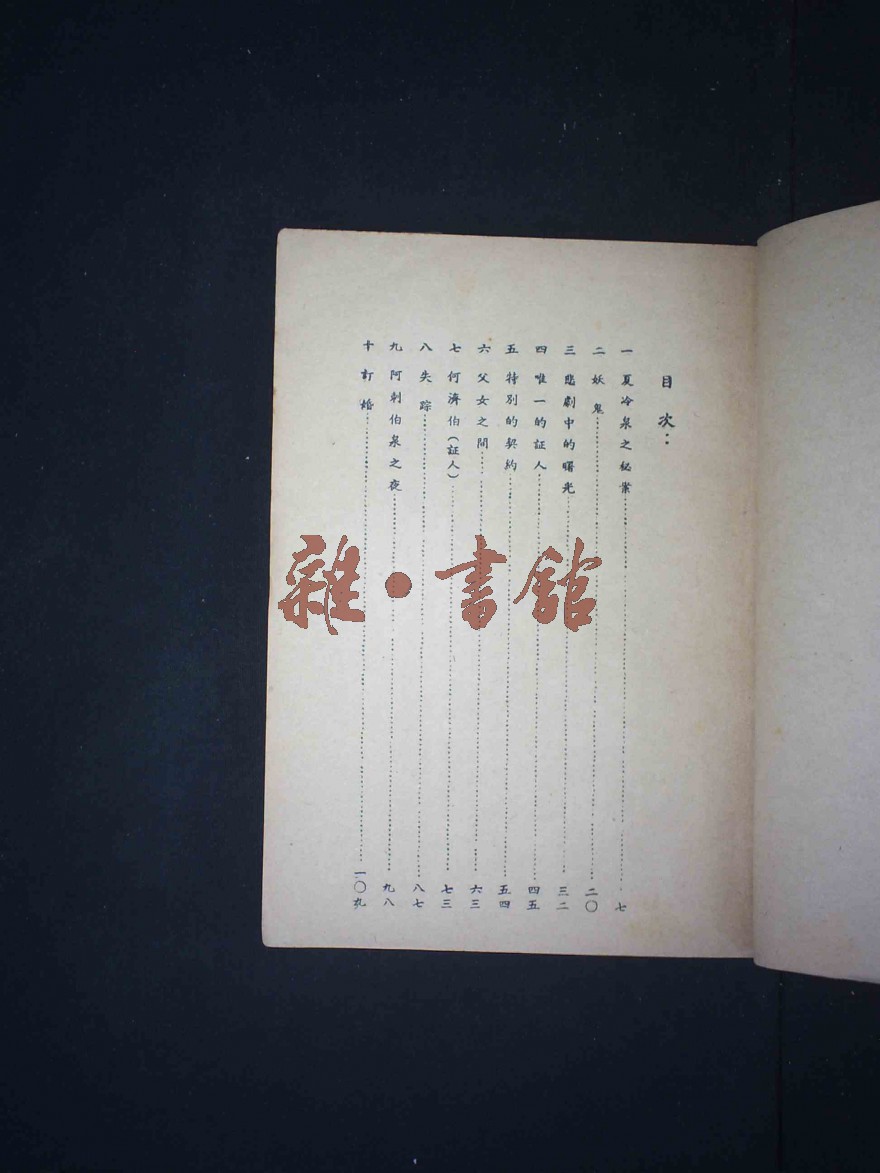 目次：
一 夏冷泉之秘案 七
二 妖鬼 二〇
三 悲劇中的曙光 三二
四 唯一的証人 四五
五 特別的契約 五四
六 父女之間 六三
七 何濟伯（証人） 七三
八 失踪 八七
九 阿剌伯泉之夜 九八
十 訂婚 一〇九
雜·書館